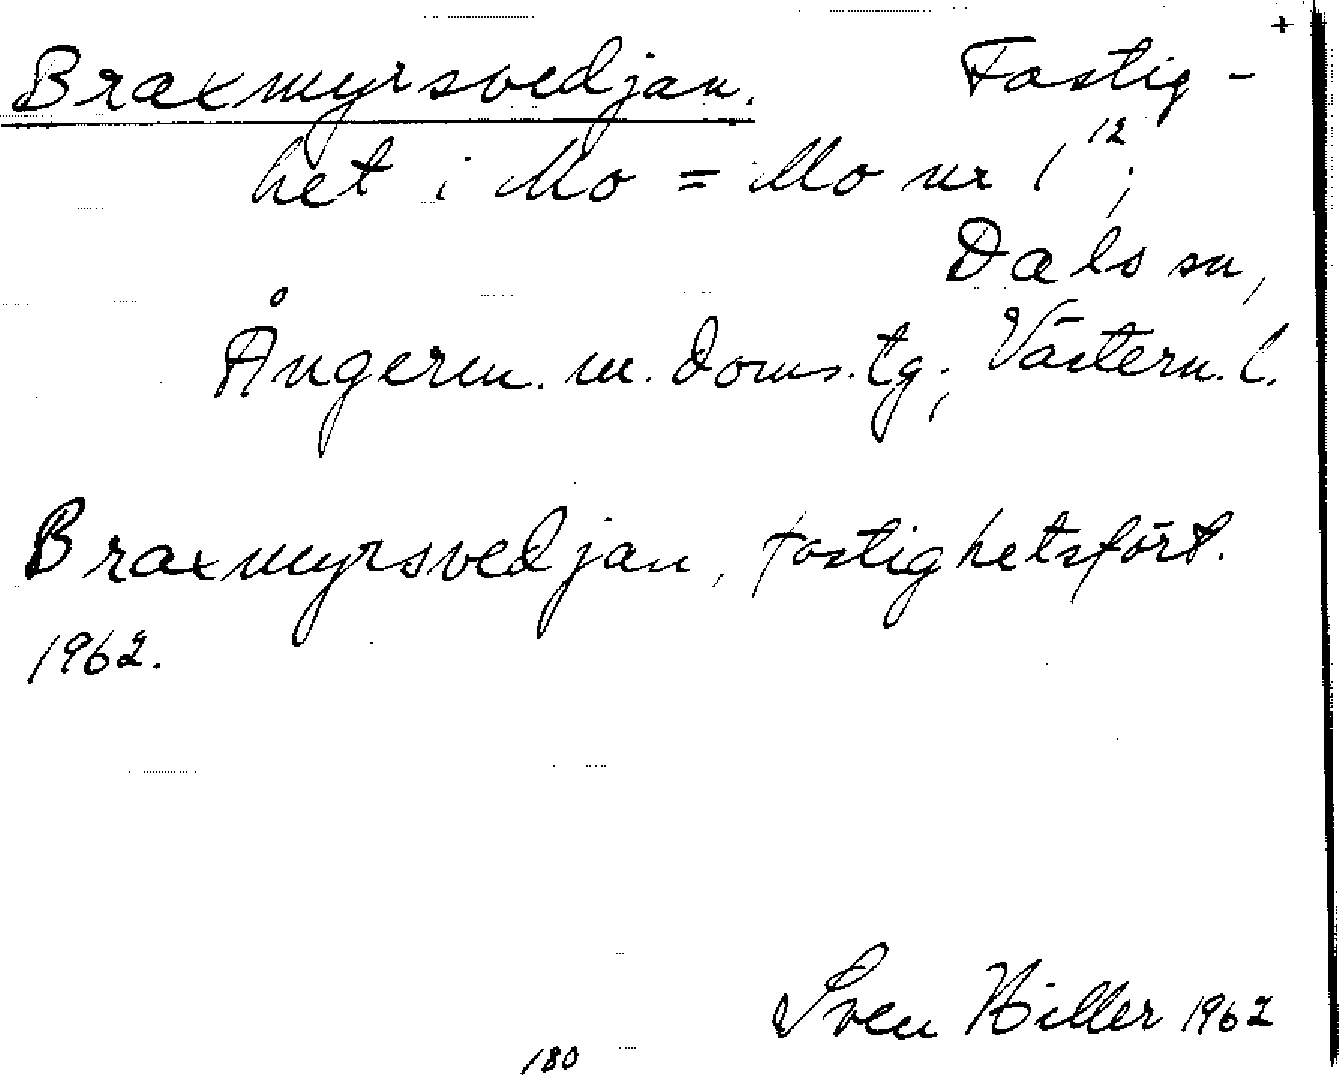 +
Braxmyrsvedjan. Fastig-
het i Mo = Mo nr 1¹²;
Dals sn,
Ångerm. m. doms. tg; Västern. l.
Braxmyrsvedjan, fastighetsfört.
1962.
Sven Hiller 1962
180